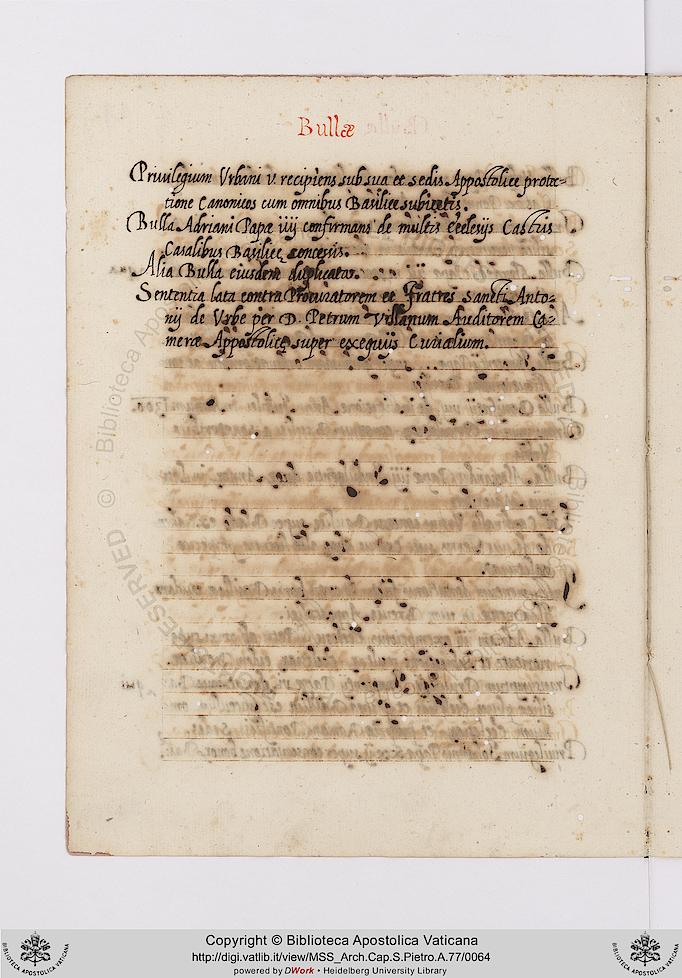 Bullæ
Priuilegium Vrbani v. recipiens sub sua et sedis Appostolice protec=
tione Canonicos cum omnibus Basilice subiectis.
Bulla Adriani Papæ iiij confirmans de multis ecclesijs Castris
Casalibus Basilicę concessis.
Alia Bulla eiusdem duplicata.
Sententia lata contra Procuratorem et Fratres Sancti Anto=
nij de Vrbe per D. Petrum Auditorem Ca=
meræ Appostolicę super exequijs
Copyright © Biblioteca Apostolica Vaticana
http://digi.vatlib.it/view/MSS_Arch.Cap.S.Pietro.A.77/0064
powered by DWork • Heidelberg University Library